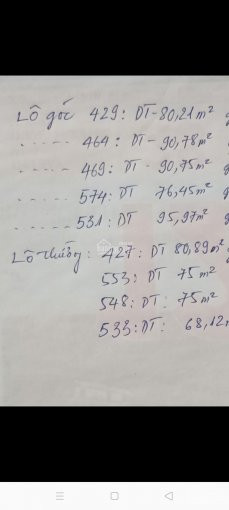 Lô góc 429: DT-80,21m²
..... 464: DT - 90,78m²
..... 469: DT - 90,75m²
..... 574: DT 76,45m²
..... 531: DT 95,97m²
Lô thường: 427: DT 80,89m²
553: DT 75m²
548: DT: 75m²
533: DT: 68,12m